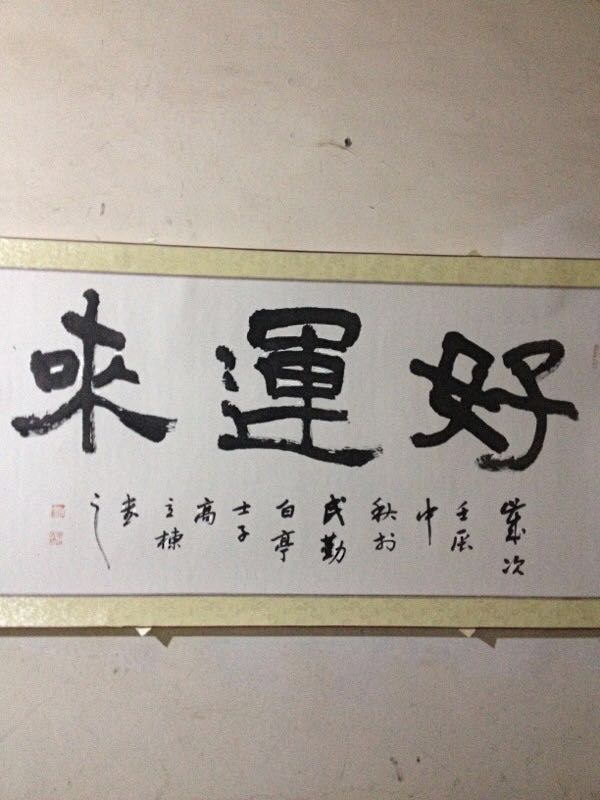 好運来
歲次
壬辰
中
秋於
民勤
白亭
士子
高
立棟
書
之